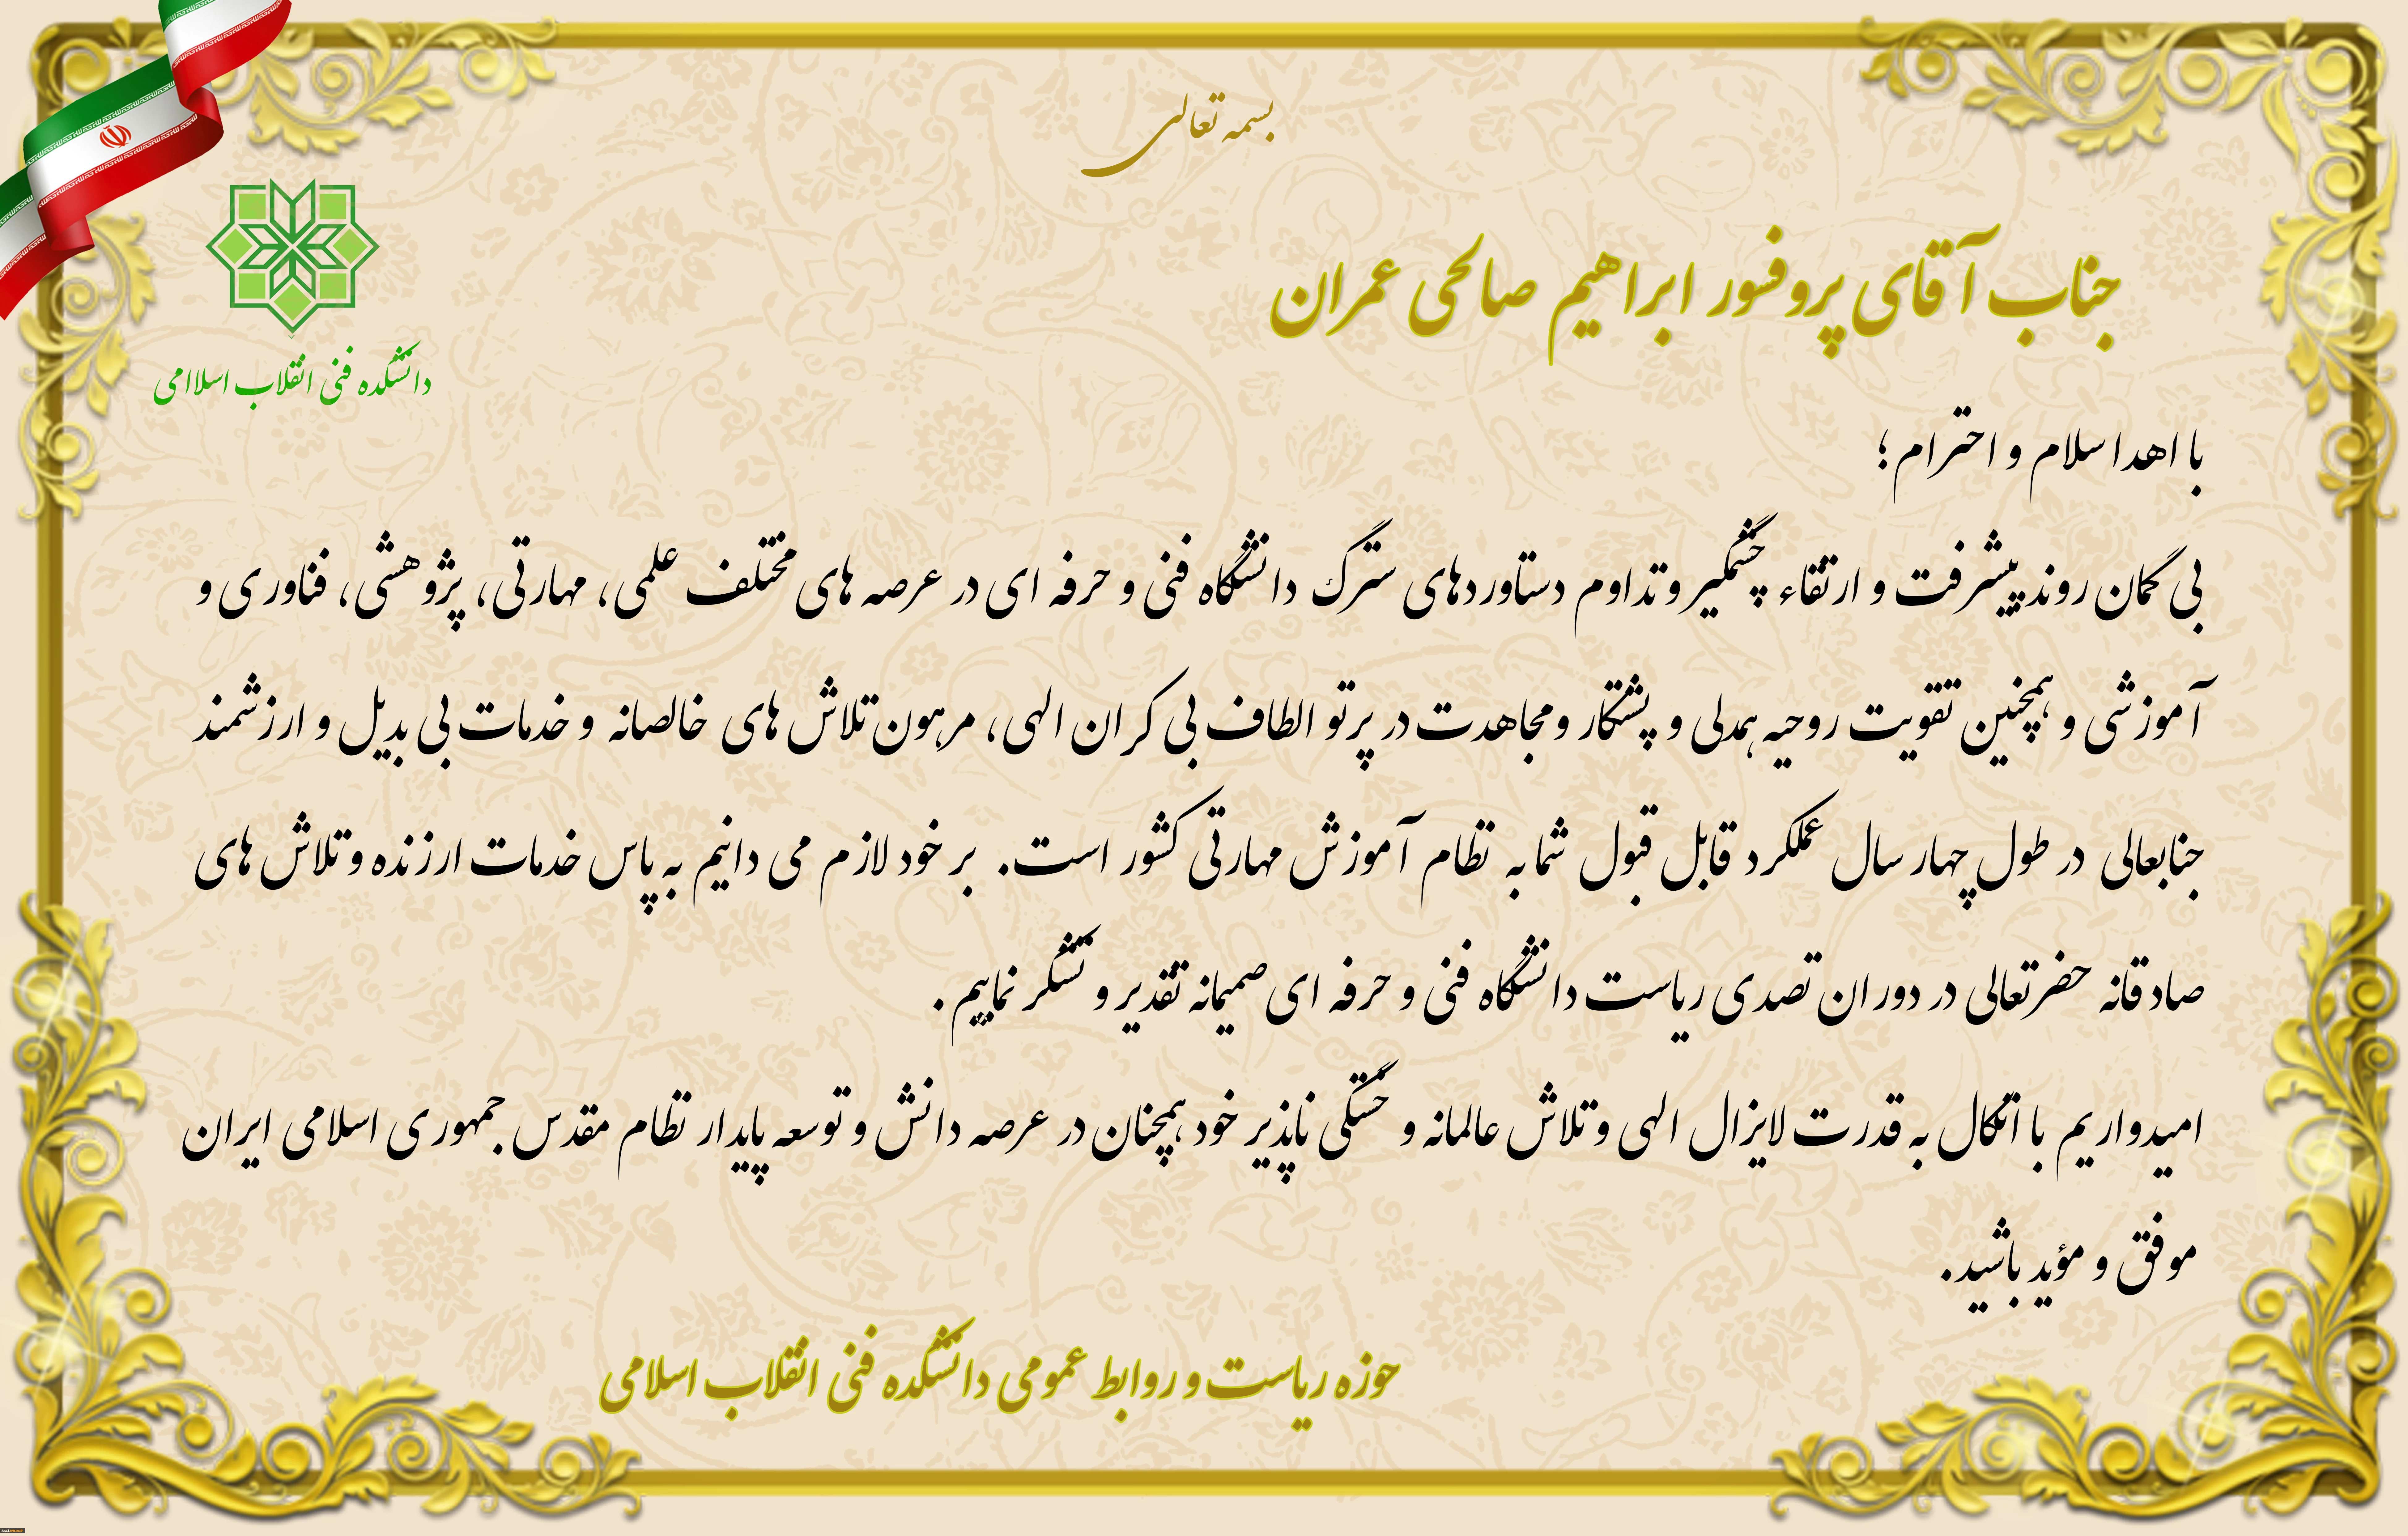 بسمه تعالی
جناب آقای پروفسور ابراهیم صالحی عمران
دانشکده فنی انقلاب اسلاامی
با اهدا سلام و احترام؛
بی گمان روند پیشرفت و ارتقاء چشمگیر و تداوم دستاوردهای سترگ دانشگاه فنی و حرفه ای در عرصه های مختلف علمی، مهارتی، پژوهشی، فناوری و
آموزشی و همچنین تقویت روحیه همدلی و پشتکار و مجاهدت در پرتو الطاف بی کران الهی، مرهون تلاش های خالصانه و خدمات بی بدیل و ارزشمند
جنابعالی در طول چهار سال عملکرد قابل قبول شما به نظام آموزش مهارتی کشور است. بر خود لازم می دانیم به پاس خدمات ارزنده و تلاش های
صادقانه حضرتعالی در دوران تصدی ریاست دانشگاه فنی و حرفه ای صمیمانه تقدیر و تشکر نماییم.
امیدواریم با اتکال به قدرت لایزال الهی و تلاش عالمانه و خستگی ناپذیر خود همچنان در عرصه دانش و توسعه پایدار نظام مقدس جمهوری اسلامی ایران
موفق و مؤید باشید.
حوزه ریاست و روابط عمومی دانشکده فنی انقلاب اسلامی